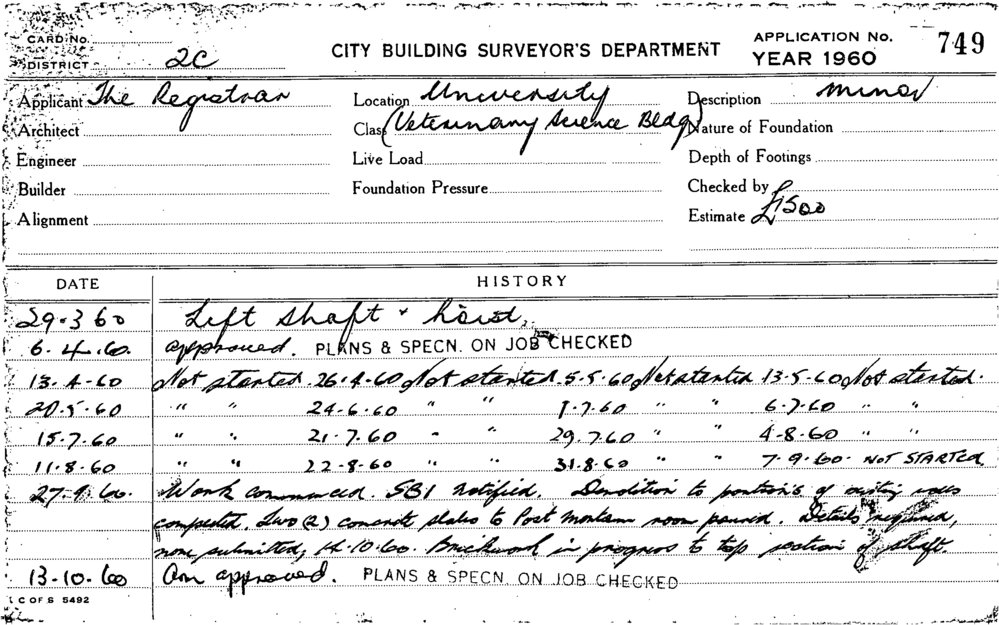 CARD No.
DISTRICT 2C
CITY BUILDING SURVEYOR'S DEPARTMENT
APPLICATION No. 749
YEAR 1960
Applicant The Registrar Location University Description minor
Architect Class (Veterinary Science Bldg) Nature of Foundation
Engineer Live Load Depth of Footings
Builder Foundation Pressure Checked by
Alignment Estimate £1500
DATE HISTORY
29.3 60 Lift shaft & hoist.
6.4.60. approved. PLANS & SPECN. ON JOB CHECKED
13-4-60 Not started. 26.4.60 Not started. 5.5.60 Not started 13.5.60 Not started.
20.5.60 " " 24.6.60 " " 1.7.60 " " 6.7.60 " "
15.7.60 " " 21.7.60 " " 29.7.60 " " 4-8-60 " "
11.8.60 " " 22-8-60 " " 31.8.60 " " 7.9.60. NOT STARTED
27.9.60. Work commenced. SBI notified. Demolition to portions of existing walls
completed. Two (2) concrete slabs to Post Mortem room poured. Details required,
none submitted, 14.10.60. Brickwork in progress to top section of shaft.
13.10.60 On approved. PLANS & SPECN. ON JOB CHECKED
C OF S 5492